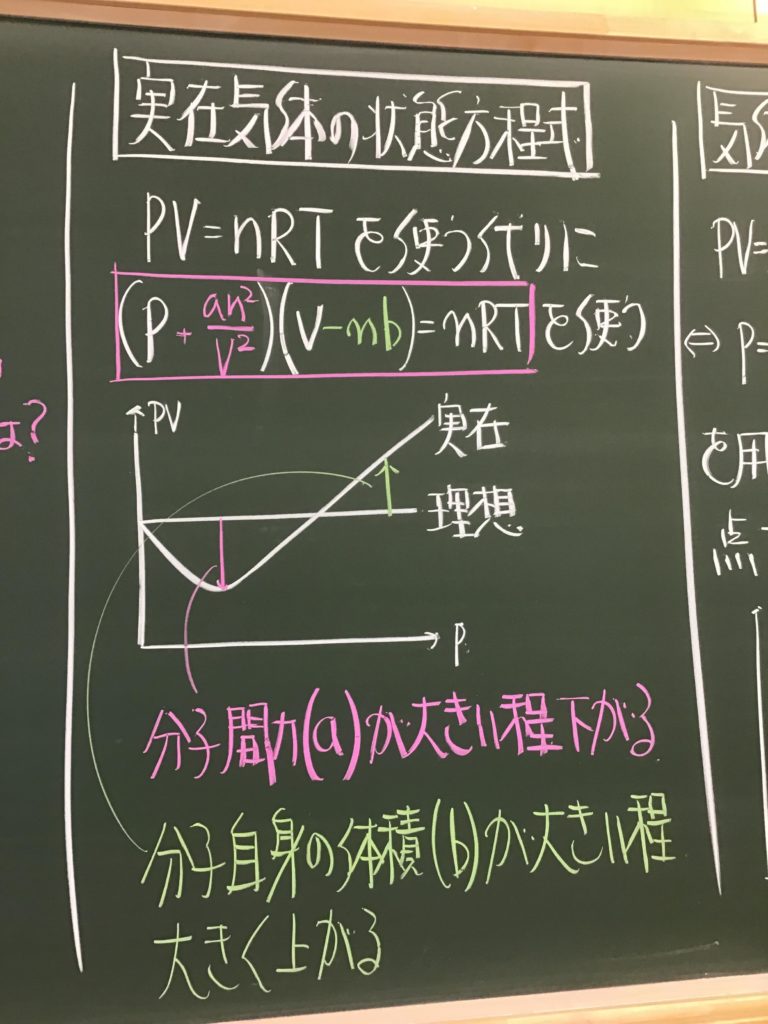 実在気体の状態方程式
PV=nRTを使う代りに
(P+an²/V²)(V-nb)=nRTを使う
PV
実在
理想
P
分子間力(a)が大きい程下がる
分子自身の体積(b)が大きい程
大きく上がる
は?
気
PV=
⇔ P=
を用
点